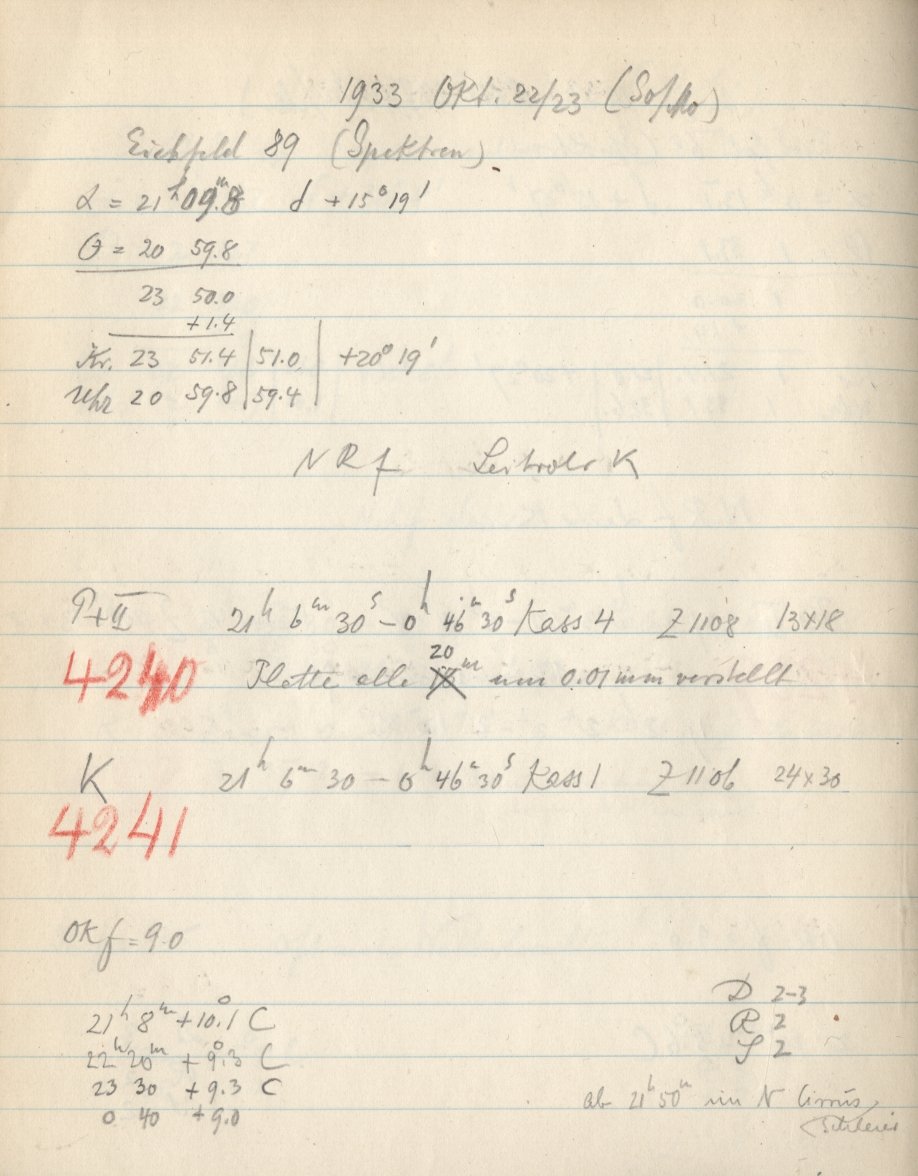 1933 Okt. 22/23 (So/Mo)
Eichfeld 89 (Spektren)
α = 21ʰ 09.8ᵐ δ +15° 19'
θ = 20 59.8
23 50.0
+1.4
Kr. 23 51.4 | 51.0 | +20° 19'
Uhr 20 59.8 | 59.4 |
NRf Leitrohr K
P+II 21ʰ 6ᵐ 30ˢ – 0ʰ 46ᵐ 30ˢ Kass 4 Z 1108 13×18
20
4240 Platte alle ᵐ um 0.01 mm verstellt
K 21ʰ 6ᵐ 30 – 0ʰ 46ᵐ 30ˢ Kass 1 Z 1106 24×30
4241
Okf = 9.0
D 2-3
21ʰ 8ᵐ +10.1° C R 2
22ʰ 20ᵐ + 9.3° C S 2
23 30 + 9.3 C
0 40 + 9.0
ab 21ʰ 50ᵐ im N Cirrus
Schleier